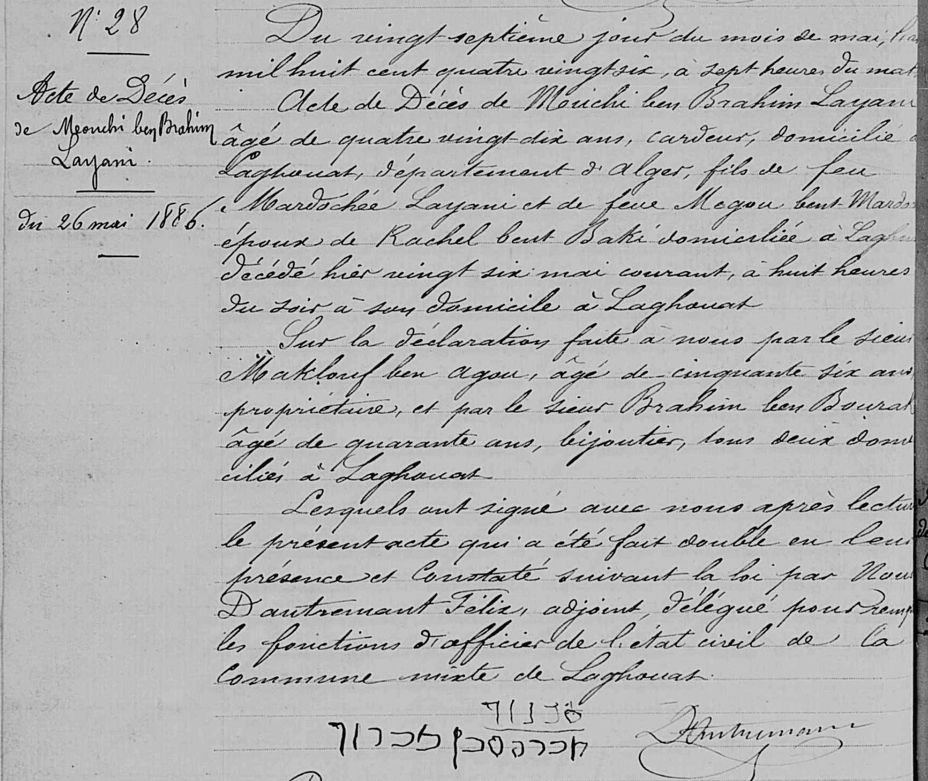 N° 28
Acte de Décés
de Meouchi ben Brahim
Layani.
du 26 mai 1886.
Du vingt septième jour du mois de mai,
mil huit cent quatre vingt six, à sept heures du mat
Acte de Décès de Mouchi ben Brahim Layani
âgé de quatre vingt dix ans, cardeur, domicilié à
Laghouat, département d'Alger, fils de feu
Mardochée Layani et de feue Megou bent Mardo
époux de Rachel bent Baki domiciliée à Lagho
décédé hier vingt six mai courant, à huit heures
du soir à son domicile à Laghouat
Sur la déclaration faite à nous par le sieur
Maklouf ben Agou, âgé de cinquante six ans
propriétaire, et par le sieur Brahim ben Bourak
âgé de quarante ans, bijoutier, tous deux domi
ciliés à Laghouat
Lesquels ont signé avec nous après lecture
le présent acte qui a été fait double en leur
présence et Constaté suivant la loi par Nous
Dautremant Félix, adjoint, délégué pour remp
les fonctions d'officier de l'état civil de la
Commune mixte de Laghouat.